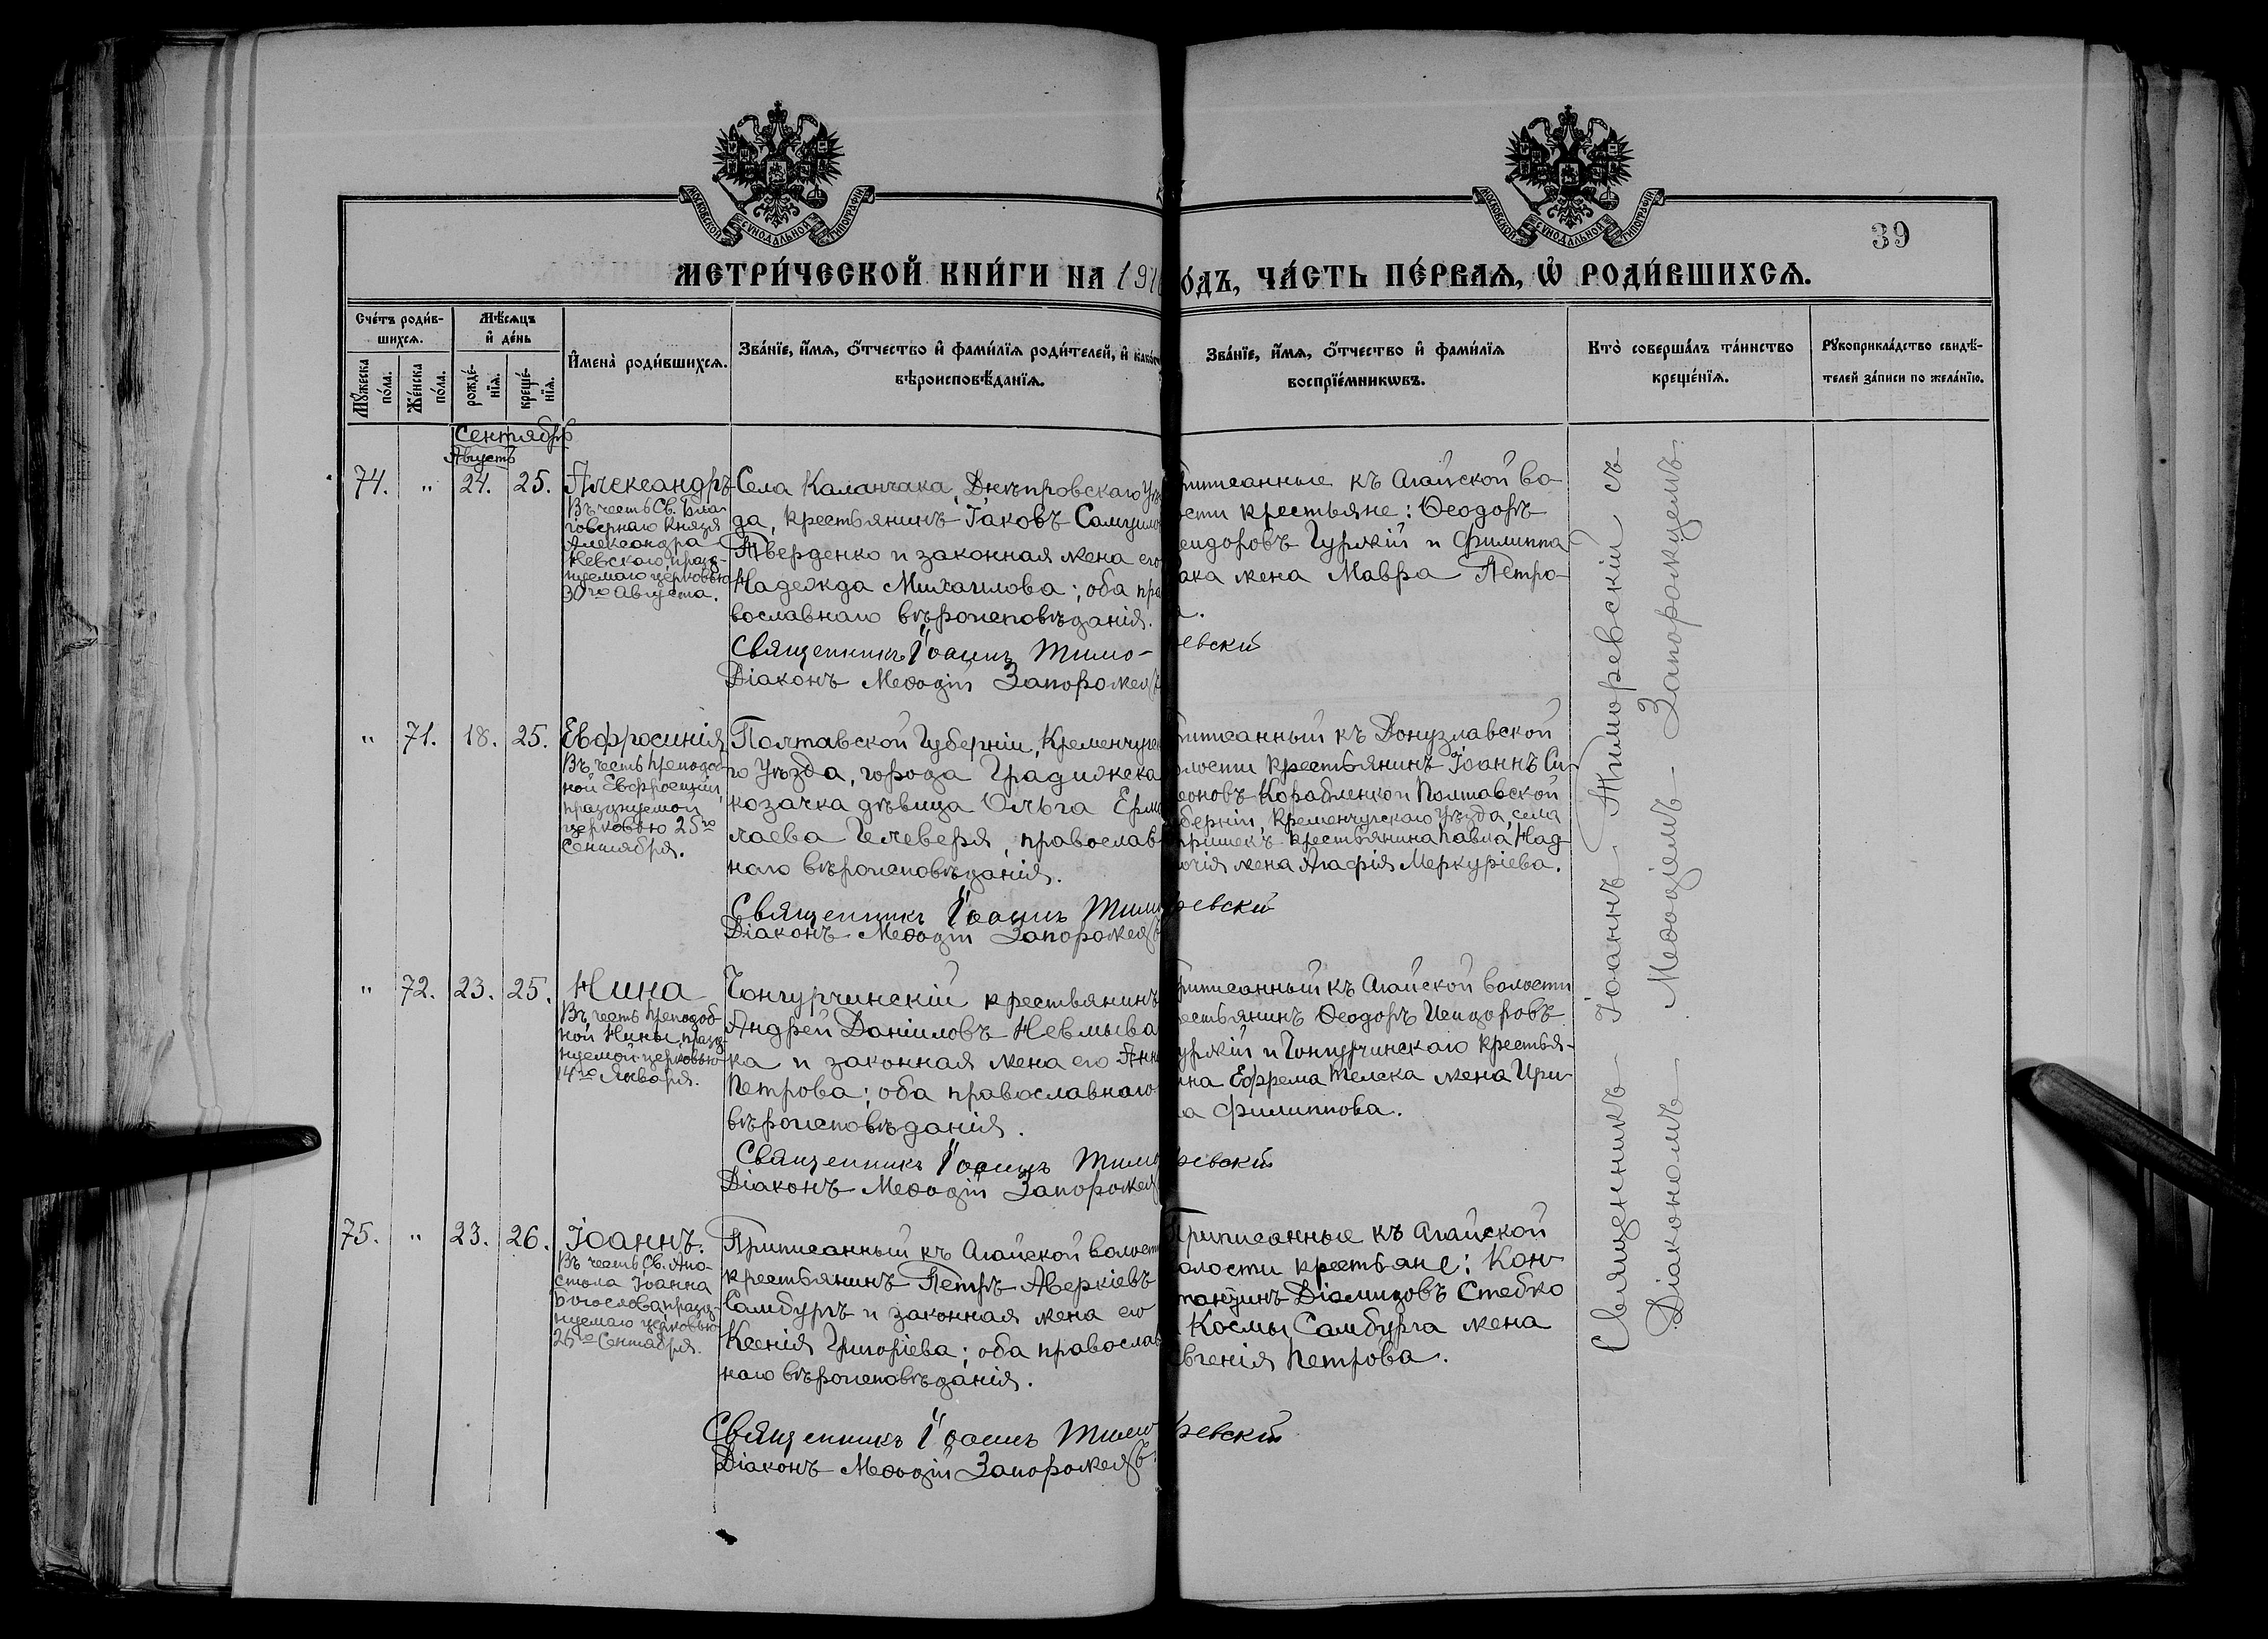 МОСКОВСКОЙ СѴНОДАЛЬНОЙ ТИПОГРАФІИ
МОСКОВСКОЙ СѴНОДАЛЬНОЙ ТИПОГРАФІИ
39
МЕТРИ́ЧЕСКОЙ КНИ́ГИ НА 191
О́ДЪ, ЧА́СТЬ ПЕ́РВАѦ, Ѡ҆ РОДИ́ВШИХСѦ.
Сче́тъ роди́в-
шихсѧ.
Мꙋ́жеска по́ла.
Же́нска по́ла.
Мѣ́сѧцъ
и҆ де́нь
рожде́-
нїѧ.
креще́-
нїѧ.
И҆мена̀ роди́вшихсѧ.
Зва́нїе, и҆́мѧ, ѻ҆́тчество и҆ фами́лїѧ роди́телей, и҆ како́
вѣроисповѣ́данїѧ.
Зва́нїе, и҆́мѧ, ѻ҆́тчество и҆ фами́лїѧ
воспрїе́мникѡвъ.
Кто̀ соверша́лъ та́инство
креще́нїѧ.
Рꙋкоприкла́дство свидѣ́-
телей за́писи по жела́нїю.
Сентябрь
Августъ
74. " 24. 25. Александръ
Въ честь Св. Бла-
говернаго Князя
Александра
Невскаго, празд-
нуемаго церковью
30го Августа.
Села Каланчака, Днѣпровскаго Уѣз
да, крестьянинъ Іаковъ Самуило
Тверденко и законная жена его
Надежда Михаилова; оба пра
вославнаго вѣроисповѣданія.
Священникъ Іоаннъ Тимо-
Діаконъ Меѳодій Запорожецъ
риписанные къ Агайской во-
ости крестьяне: Ѳеодоръ
сидоровъ Гуржій и Филиппа
ака жена Мавра Петро-
а.
ревскій
" 71. 18. 25. Евфросинія
Въ честь преподоб-
ной Евфросиніи,
празднуемой
церковью 25го
Сентября.
Полтавской Губерніи, Кременчугс
го Уѣзда, города Градижска
козачка дѣвица Ольга Ермо
лаева Челеверя, православ
наго вѣроисповѣданія.
Священникъ Іоаннъ Тимо
Діаконъ Меѳодій Запорожецъ
риписанный къ Донузлавской
олости крестьянинъ Іоаннъ Си-
еоновъ Корабленко и Полтавской
уберніи, Кременчугскаго Уѣзда, села
крестьянина Павла Над
очія жена Агафія Меркуріева.
ревскій
" 72. 23. 25. Нина
Въ честь преподоб-
ной Нины, празд-
нуемой церковью
14го Января.
Чонгурчинскій крестьянинъ
Андрей Даніиловъ Невмыва
ка и законная жена его Анн
Петрова; оба православнаго
вѣроисповѣданія.
Священникъ Іоаннъ Тимо
Діаконъ Меѳодій Запорожецъ
риписанный къ Агайской волости
рестьянинъ Ѳеодоръ Исидоровъ
уржій и Чонгурчинскаго крестья-
ина Ефрема жена Ири-
а Филиппова.
ревскій
75. " 23. 26. Іоаннъ.
Въ честь Св. Апо-
стола Іоанна
Богослова, празд-
нуемаго церковью
26го Сентября.
Приписанный къ Агайской волост
крестьянинъ Петръ Аверкіевъ
Самбуръ и законная жена его
Ксенія Григоріева; оба православ
наго вѣроисповѣданія.
Священникъ Іоаннъ Тимо
Діаконъ Меѳодій Запорожецъ.
Приписанные къ Агайской
олости крестьяне: Кон-
тантинъ Діомидовъ Стебко
Космы Самбурга жена
вгенія Петрова.
ревскій
Священникъ Іоаннъ Тиморевскій съ
Діакономъ Меѳодіемъ Запорожцемъ.